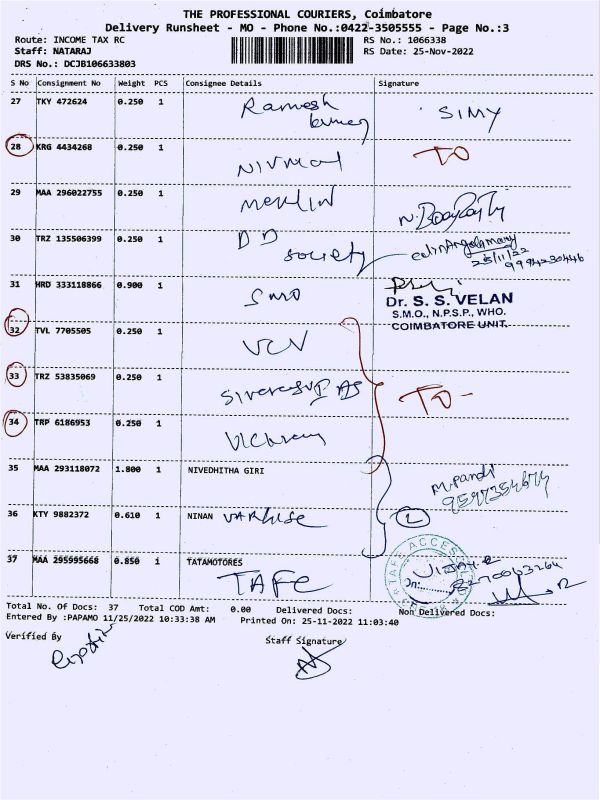 THE PROFESSIONAL COURIERS, Coimbatore
Delivery Runsheet - MO - Phone No.:0422-3505555 - Page No.:3
Route: INCOME TAX RC RS No.: 1066338
Staff: NATARAJ RS Date: 25-Nov-2022
DRS No.: DCJB106633803
S No Consignment No Weight PCS Consignee Details Signature
27 TKY 472624 0.250 1 Ramesh SIMY
28 KRG 4434268 0.250 1 Nirmal TO
29 MAA 296022755 0.250 1 Merlin
30 TRZ 135506399 0.250 1 DD
society
25/11/22
9994230446
31 HRD 333118866 0.900 1 SMO
Dr. S. S. VELAN
S.M.O., N.P.S.P., WHO.
COIMBATORE UNIT.
32 TVL 7705505 0.250 1 VCV
33 TRZ 53835069 0.250 1 TO-
34 TRP 6186953 0.250 1
35 MAA 293118072 1.800 1 NIVEDHITHA GIRI M.Pandi
36 KTY 9882372 0.610 1 NINAN VARKISE 2
37 MAA 295995668 0.850 1 TATAMOTORES
TAFE
Total No. Of Docs: 37 Total COD Amt: 0.00 Delivered Docs: Non Delivered Docs:
Entered By :PAPAMO 11/25/2022 10:33:38 AM Printed On: 25-11-2022 11:03:40
Verified By Staff Signature